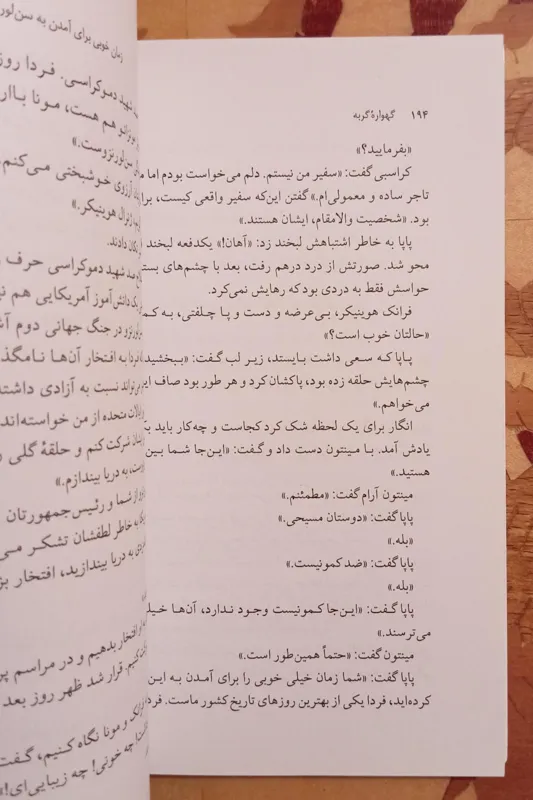 ۱۹۴ گهوارهٔ گربه
«بفرمایید؟»
کراسبی گفت: «سفیر من نیستم. دلم می‌خواست بودم اما
تاجر ساده و معمولی‌ام.» گفتن این‌که سفیر واقعی کیست،
بود. «شخصیت والامقام، ایشان هستند.»
پاپا به خاطر اشتباهش لبخند زد: «آهان!» یکدفعه لبخند
محو شد. صورتش از درد درهم رفت، بعد با چشم‌های
حواسش فقط به دردی بود که رهایش نمی‌کرد.
فرانک هوینیکر، بی‌عرضه و دست و پا چلفتی، به
«حالتان خوب است؟»
پاپا که سعی داشت بایستد، زیر لب گفت:
چشم‌هایش حلقه زده بود، پاکشان کرد و هر طور بود صاف
می‌خواهم.»
انگار برای یک لحظه شک کرد کجاست و چه‌کار باید
یادش آمد. با مینتون دست داد و گفت: «این‌جا شما
هستید.»
مینتون آرام گفت: «مطمئنم.»
پاپا گفت: «دوستان مسیحی.»
«بله.»
پاپا گفت: «ضد کمونیست.»
«بله.»
پاپا گفت: «این‌جا کمونیست وجود ندارد، آن‌ها
می‌ترسند.»
مینتون گفت: «حتماً همین‌طور است.»
پاپا گفت: «شما زمان خیلی خوبی را برای آمدن به این
کرده‌اید، فردا یکی از بهترین روزهای تاریخ کشور ماست.
زمان خوبی برای آمدن به
شهید دموکراسی. فردا
هم هست، مونا
آرزوی خوشبختی می‌کنم.
ژنرال هوینیکر.»
تکان دادند.
صد شهید دموکراسی حرف
یک دانش‌آموز آمریکایی هم
و در جنگ جهانی دوم
به افتخار آن‌ها
نسبت به آزادی داشته
متحده از من خواسته‌اند
شرکت کنم و حلقهٔ گلی
به دریا بیندازم.»
از شما و رئیس‌جمهورتان
به خاطر لطفشان تشکر
به دریا بیندازید، افتخار
افتخار بدهیم و در مراسم
قرار شد ظهر روز بعد
و مونا نگاه کنیم، گفت
چه خونی! چه زیبایی‌ای!»